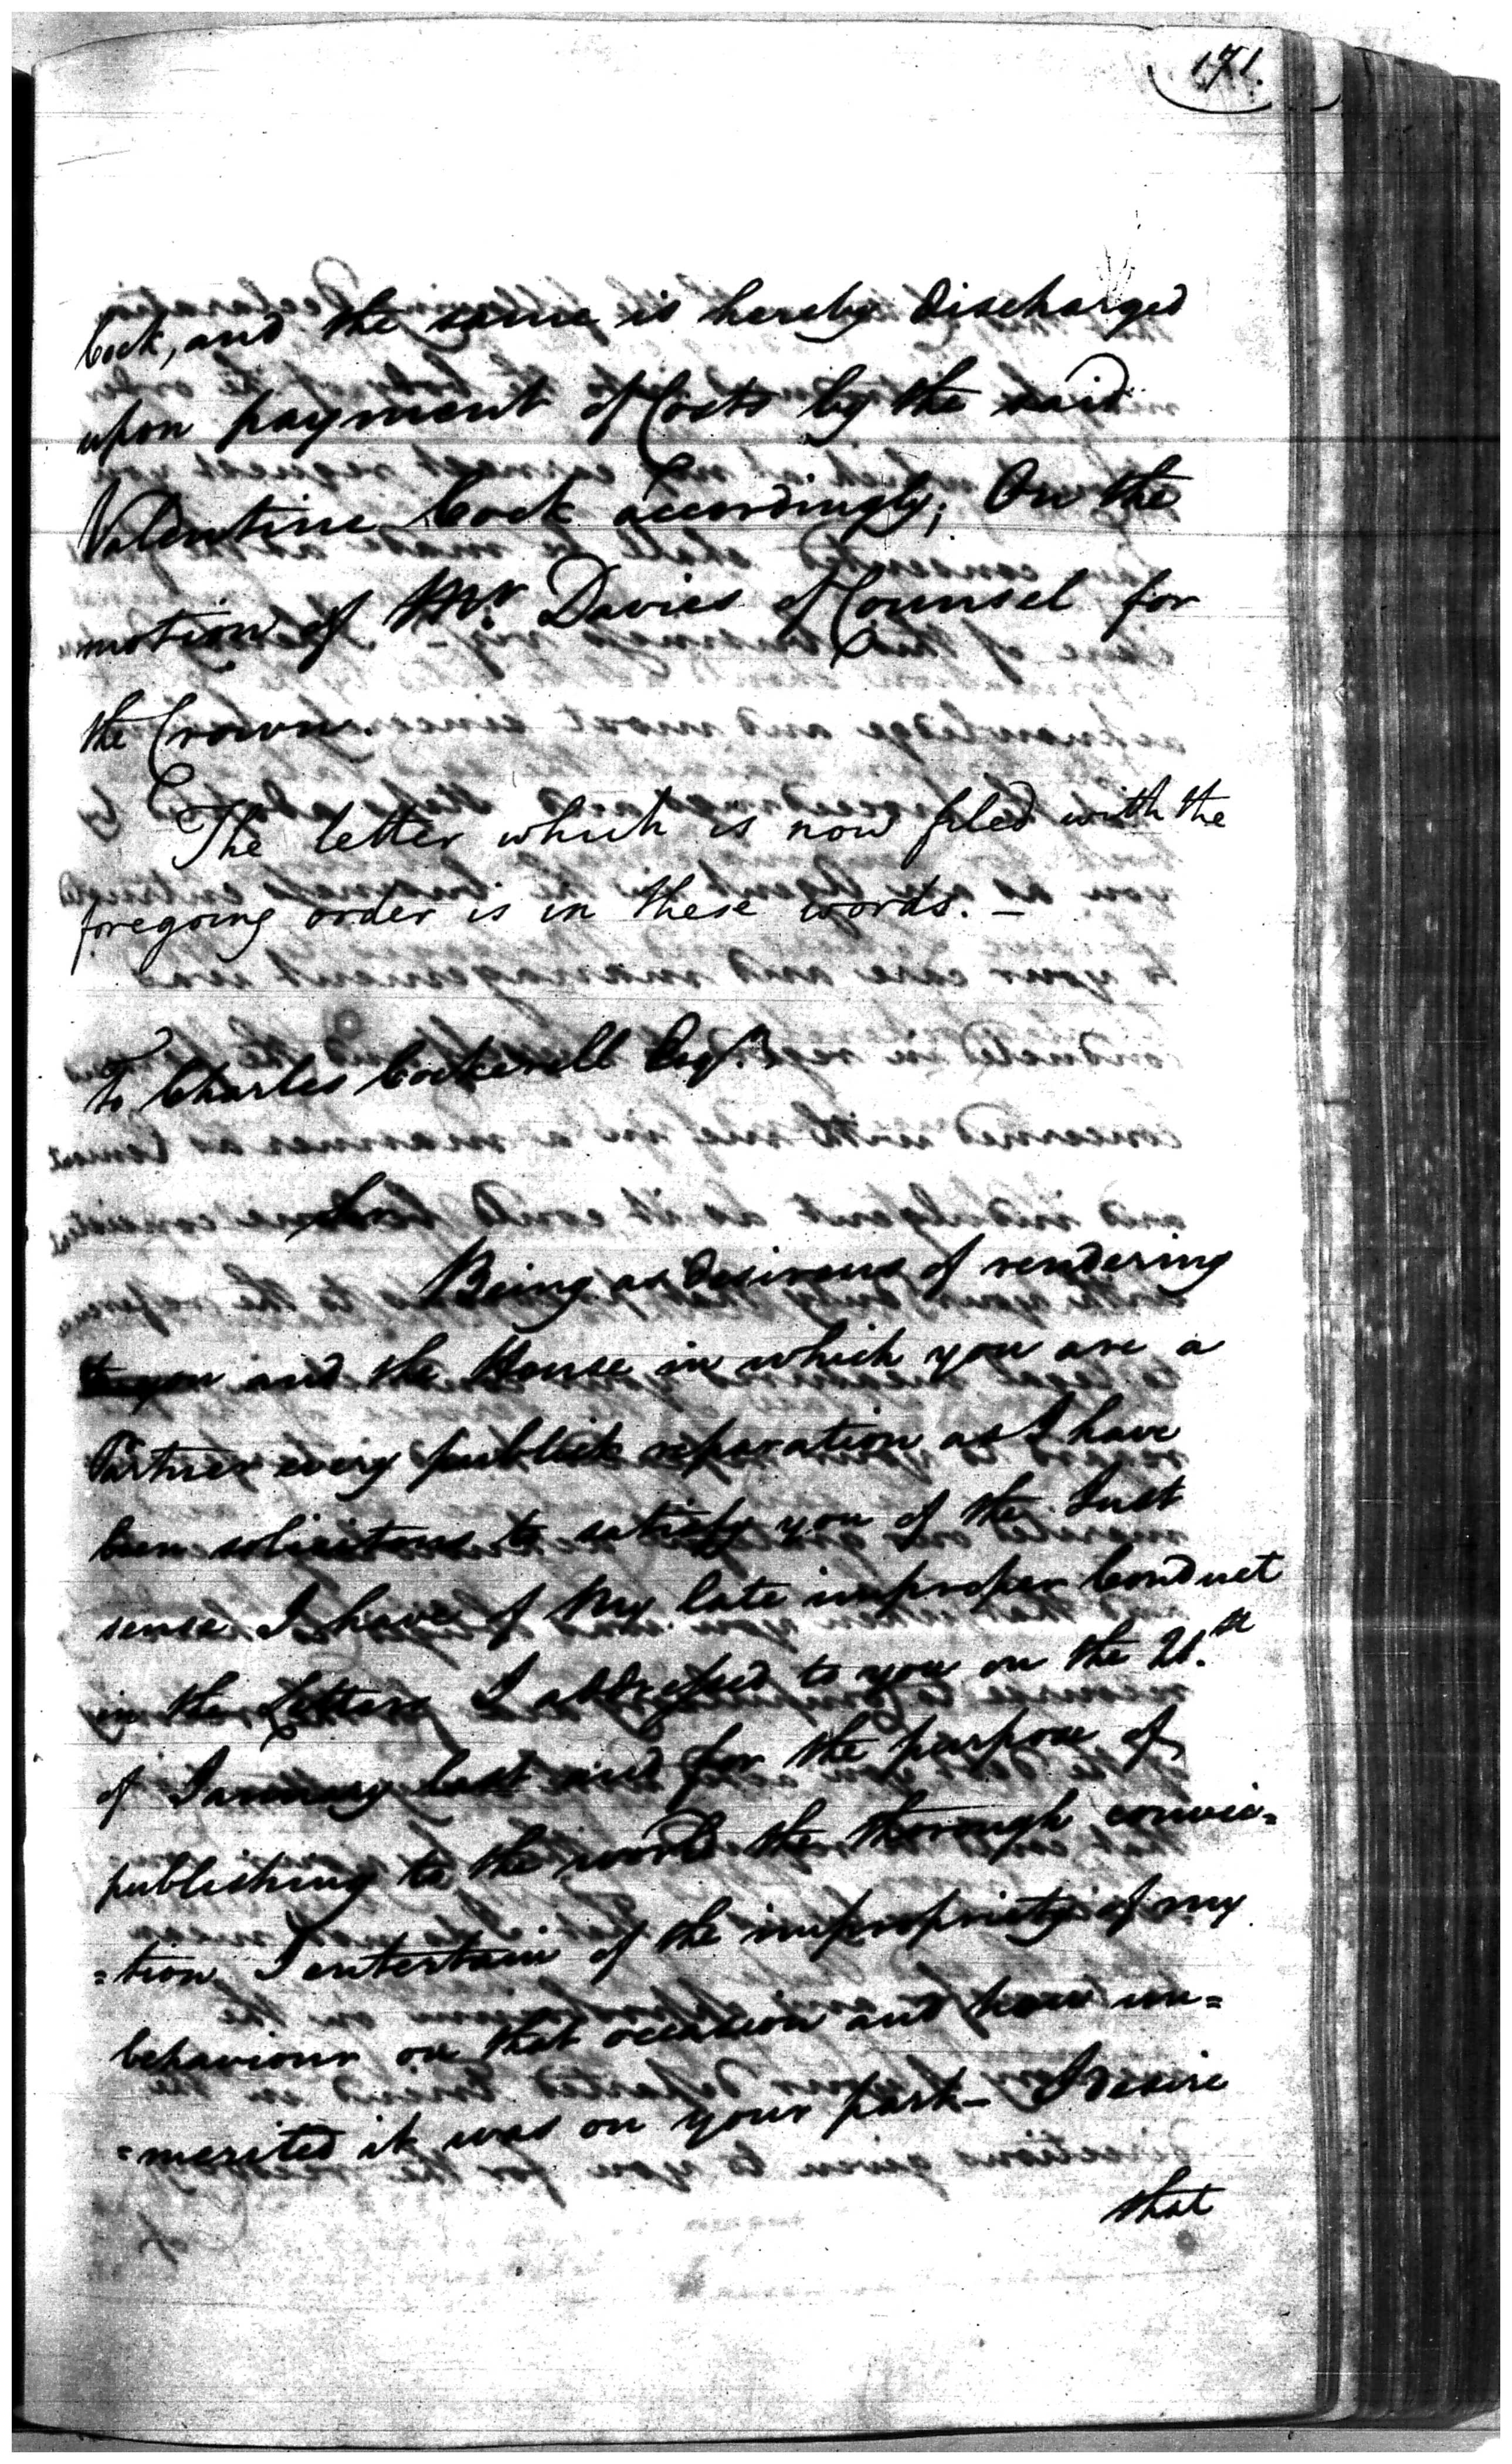 171.
Cock, and the same is hereby discharged
upon payment of Costs by the said
Valentine Cock accordingly; On the
motion of Mr. Davies of Counsel for
the Crown.
The letter which is now filed with the
foregoing order is in these words. —
To Charles Cockerell Esqr.
Sir
Being as desirous of rendering
to you and the House in which you are a
Partner every publick reparation as I have
been solicitous to satisfy you of the Just
sense I have of My late improper Conduct
in the Letters I addressed to you on the 21.st
of January last and for the purpose of
publishing to the world the thorough convic=
=tion I entertain of the impropriety of my
behaviour on that occasion and how un=
=merited it was on your part — I desire
that